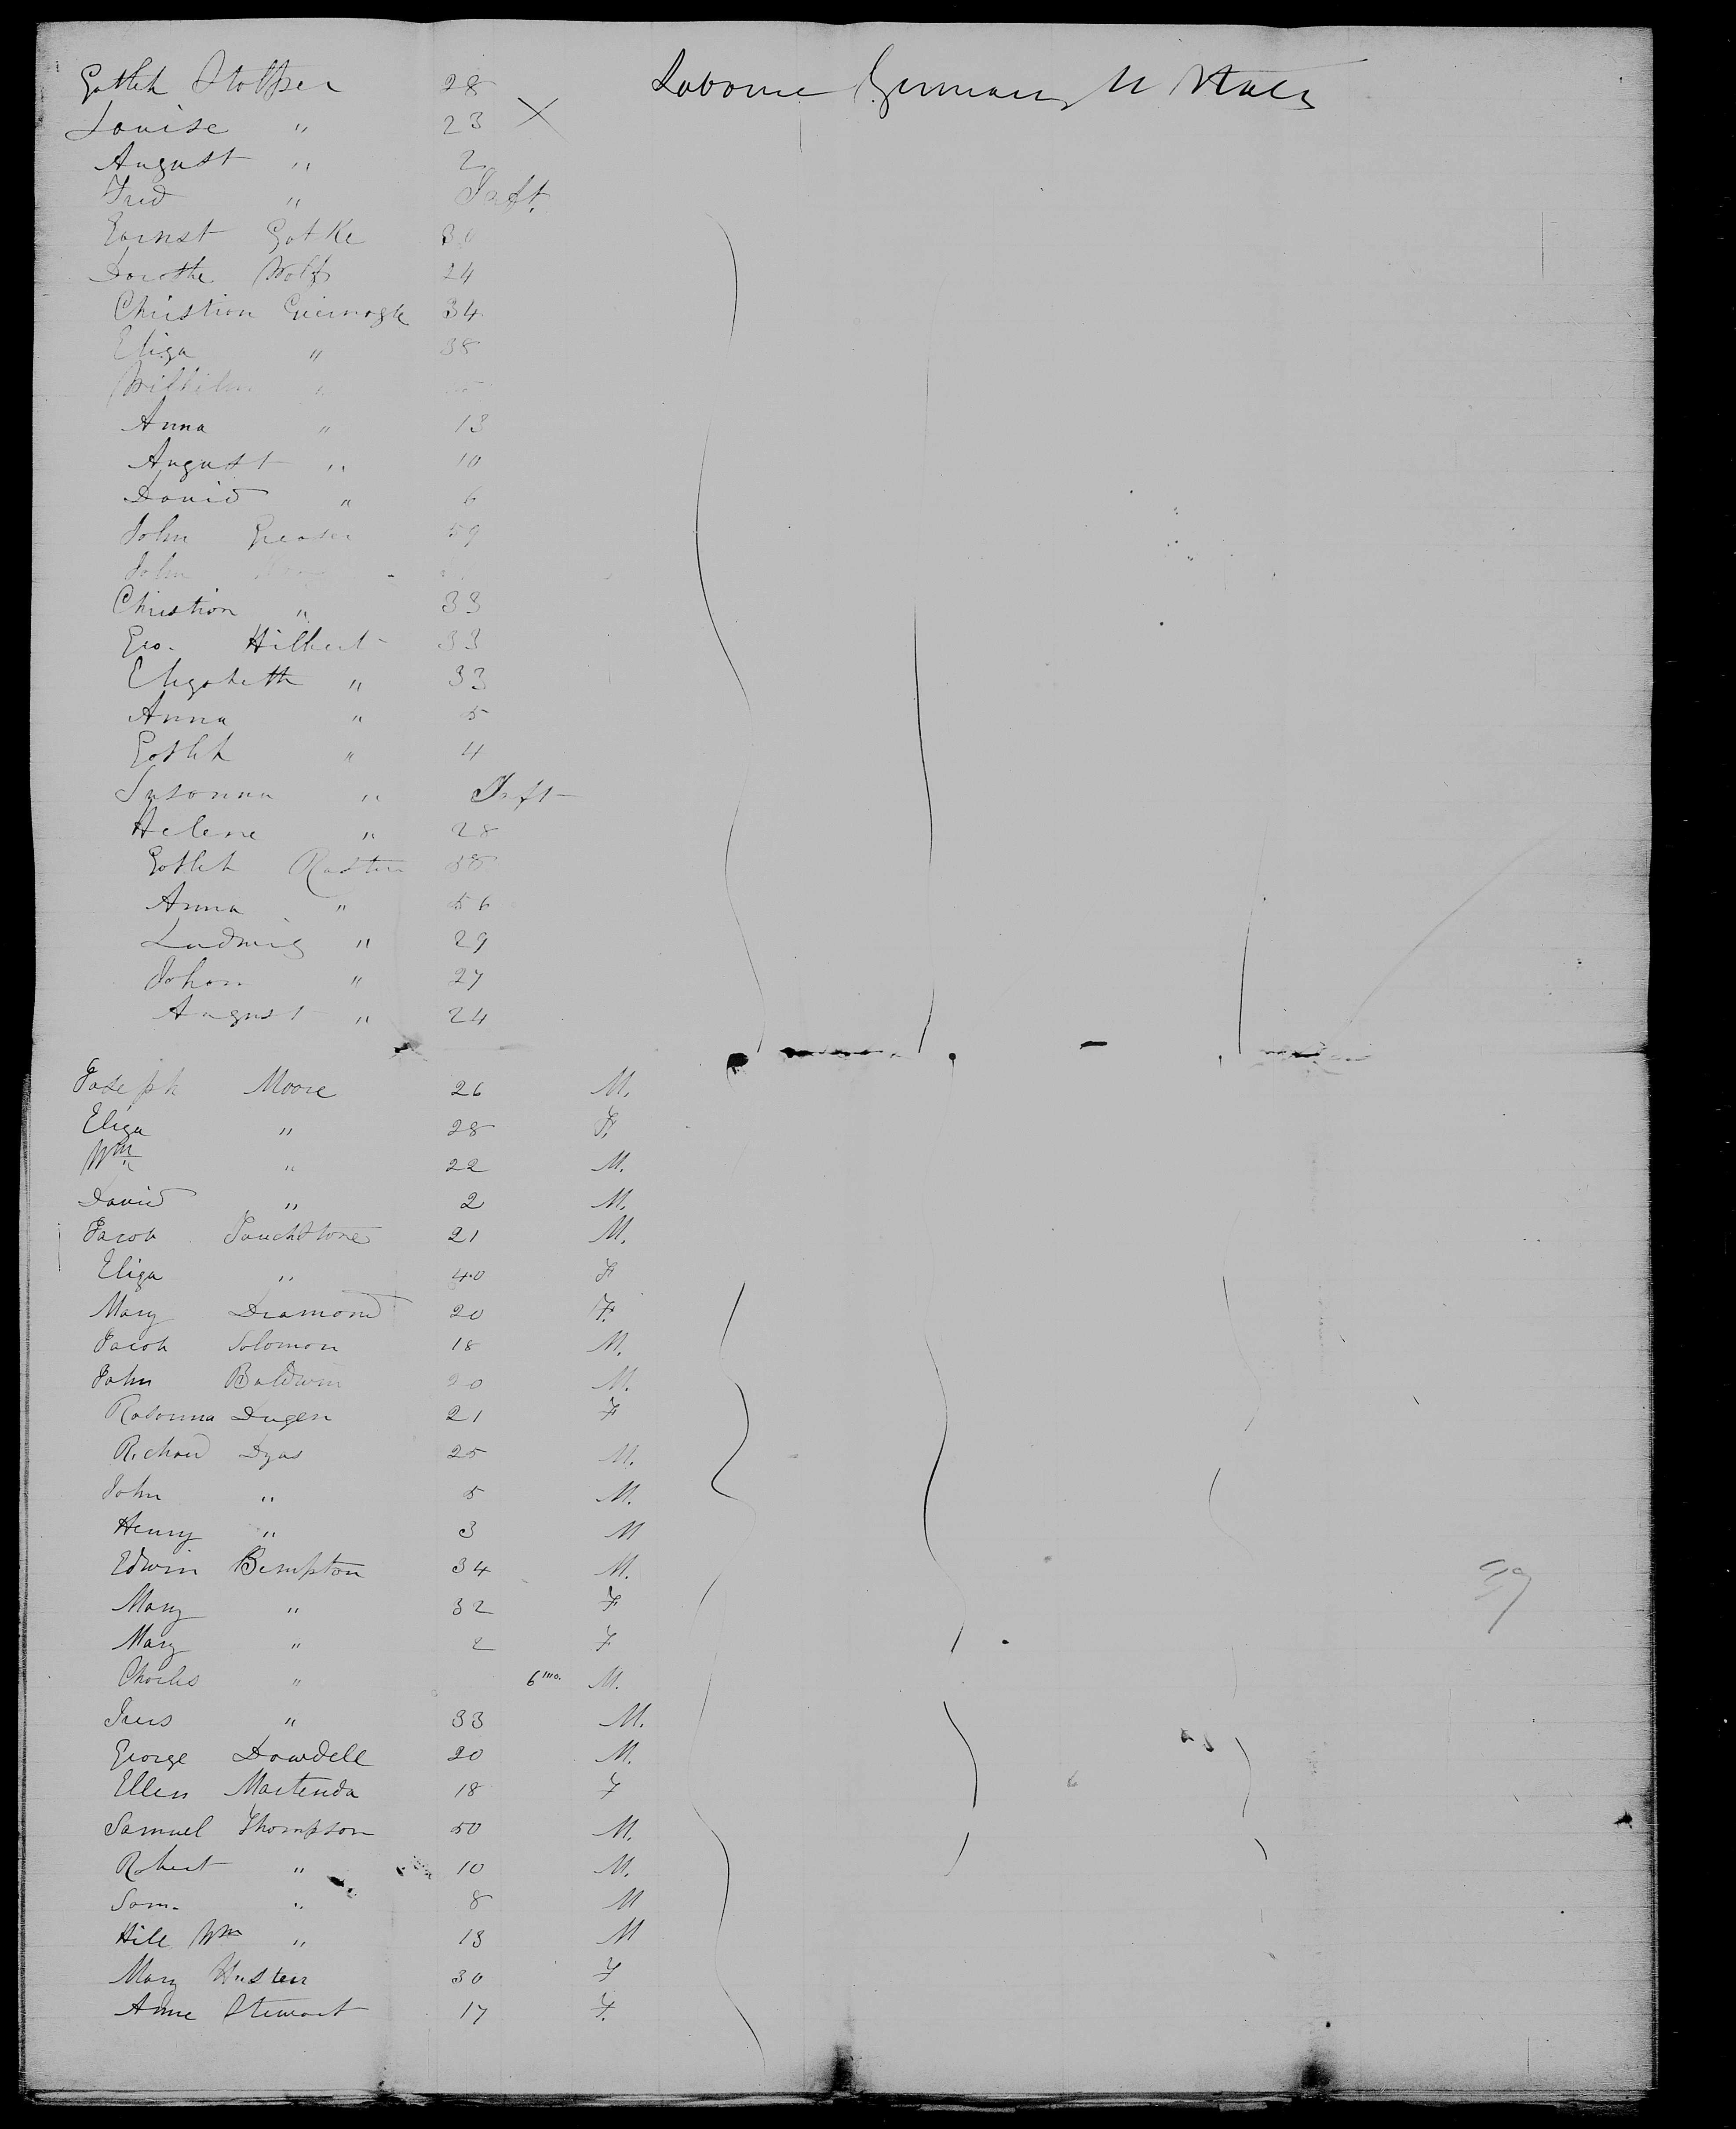 Gottleb Stolper 28 Laborer Germany U States
Louise " 23 X
August " 2
Fred " Inft.
Earnst Gatke 30
Dorothe Wolf 24
Christian 34
Eliza " 38
Wilhelm "
Anna " 13
August " 10
David " 6
John Greaser 59
John
Christian " 33
Geo. Hilbert 33
Elizabeth " 33
Anna " 5
Gotleb " 4
Susanna " Inft
Helene " 28
Gotleb Raster
Anna " 56
Ludwig " 29
Johan " 27
August " 24
Joseph Moore 26 M.
Eliza " 28 F.
Wm " 22 M.
David " 2 M.
Jacob Touchstone 21 M.
Eliza " 40 F
Mary Diamond 20 F.
Jacob Solomon 18 M.
John Baldwin 20 M.
Rosanna Dugen 21 F
Richard Dyas 25 M.
John " 5 M.
Henry " 3 M
Edwin Bempton 34 M.
Mary " 32 F
Mary " 2 F
Charles " 6 mo. M.
" 33 M.
George Dowdell 20 M.
Ellen Martenda 18 F
Samuel Thompson 50 M.
Robert " 10 M.
Sam. " 8 M
Hill Wm " 13 M
Mary Husten 30 F
Anne Stewart 17 F.